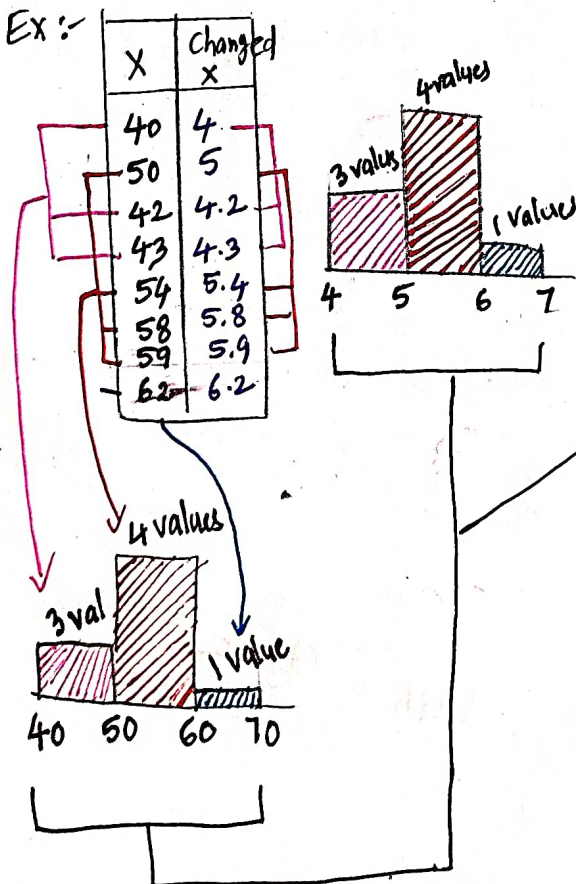 Ex :-
X Changed x
40 4
50 5
42 4.2
43 4.3
54 5.4
58 5.8
59 5.9
62 6.2
4 values
3 valus
1 values
4 5 6 7
4 values
3 val
1 value
40 50 60 70